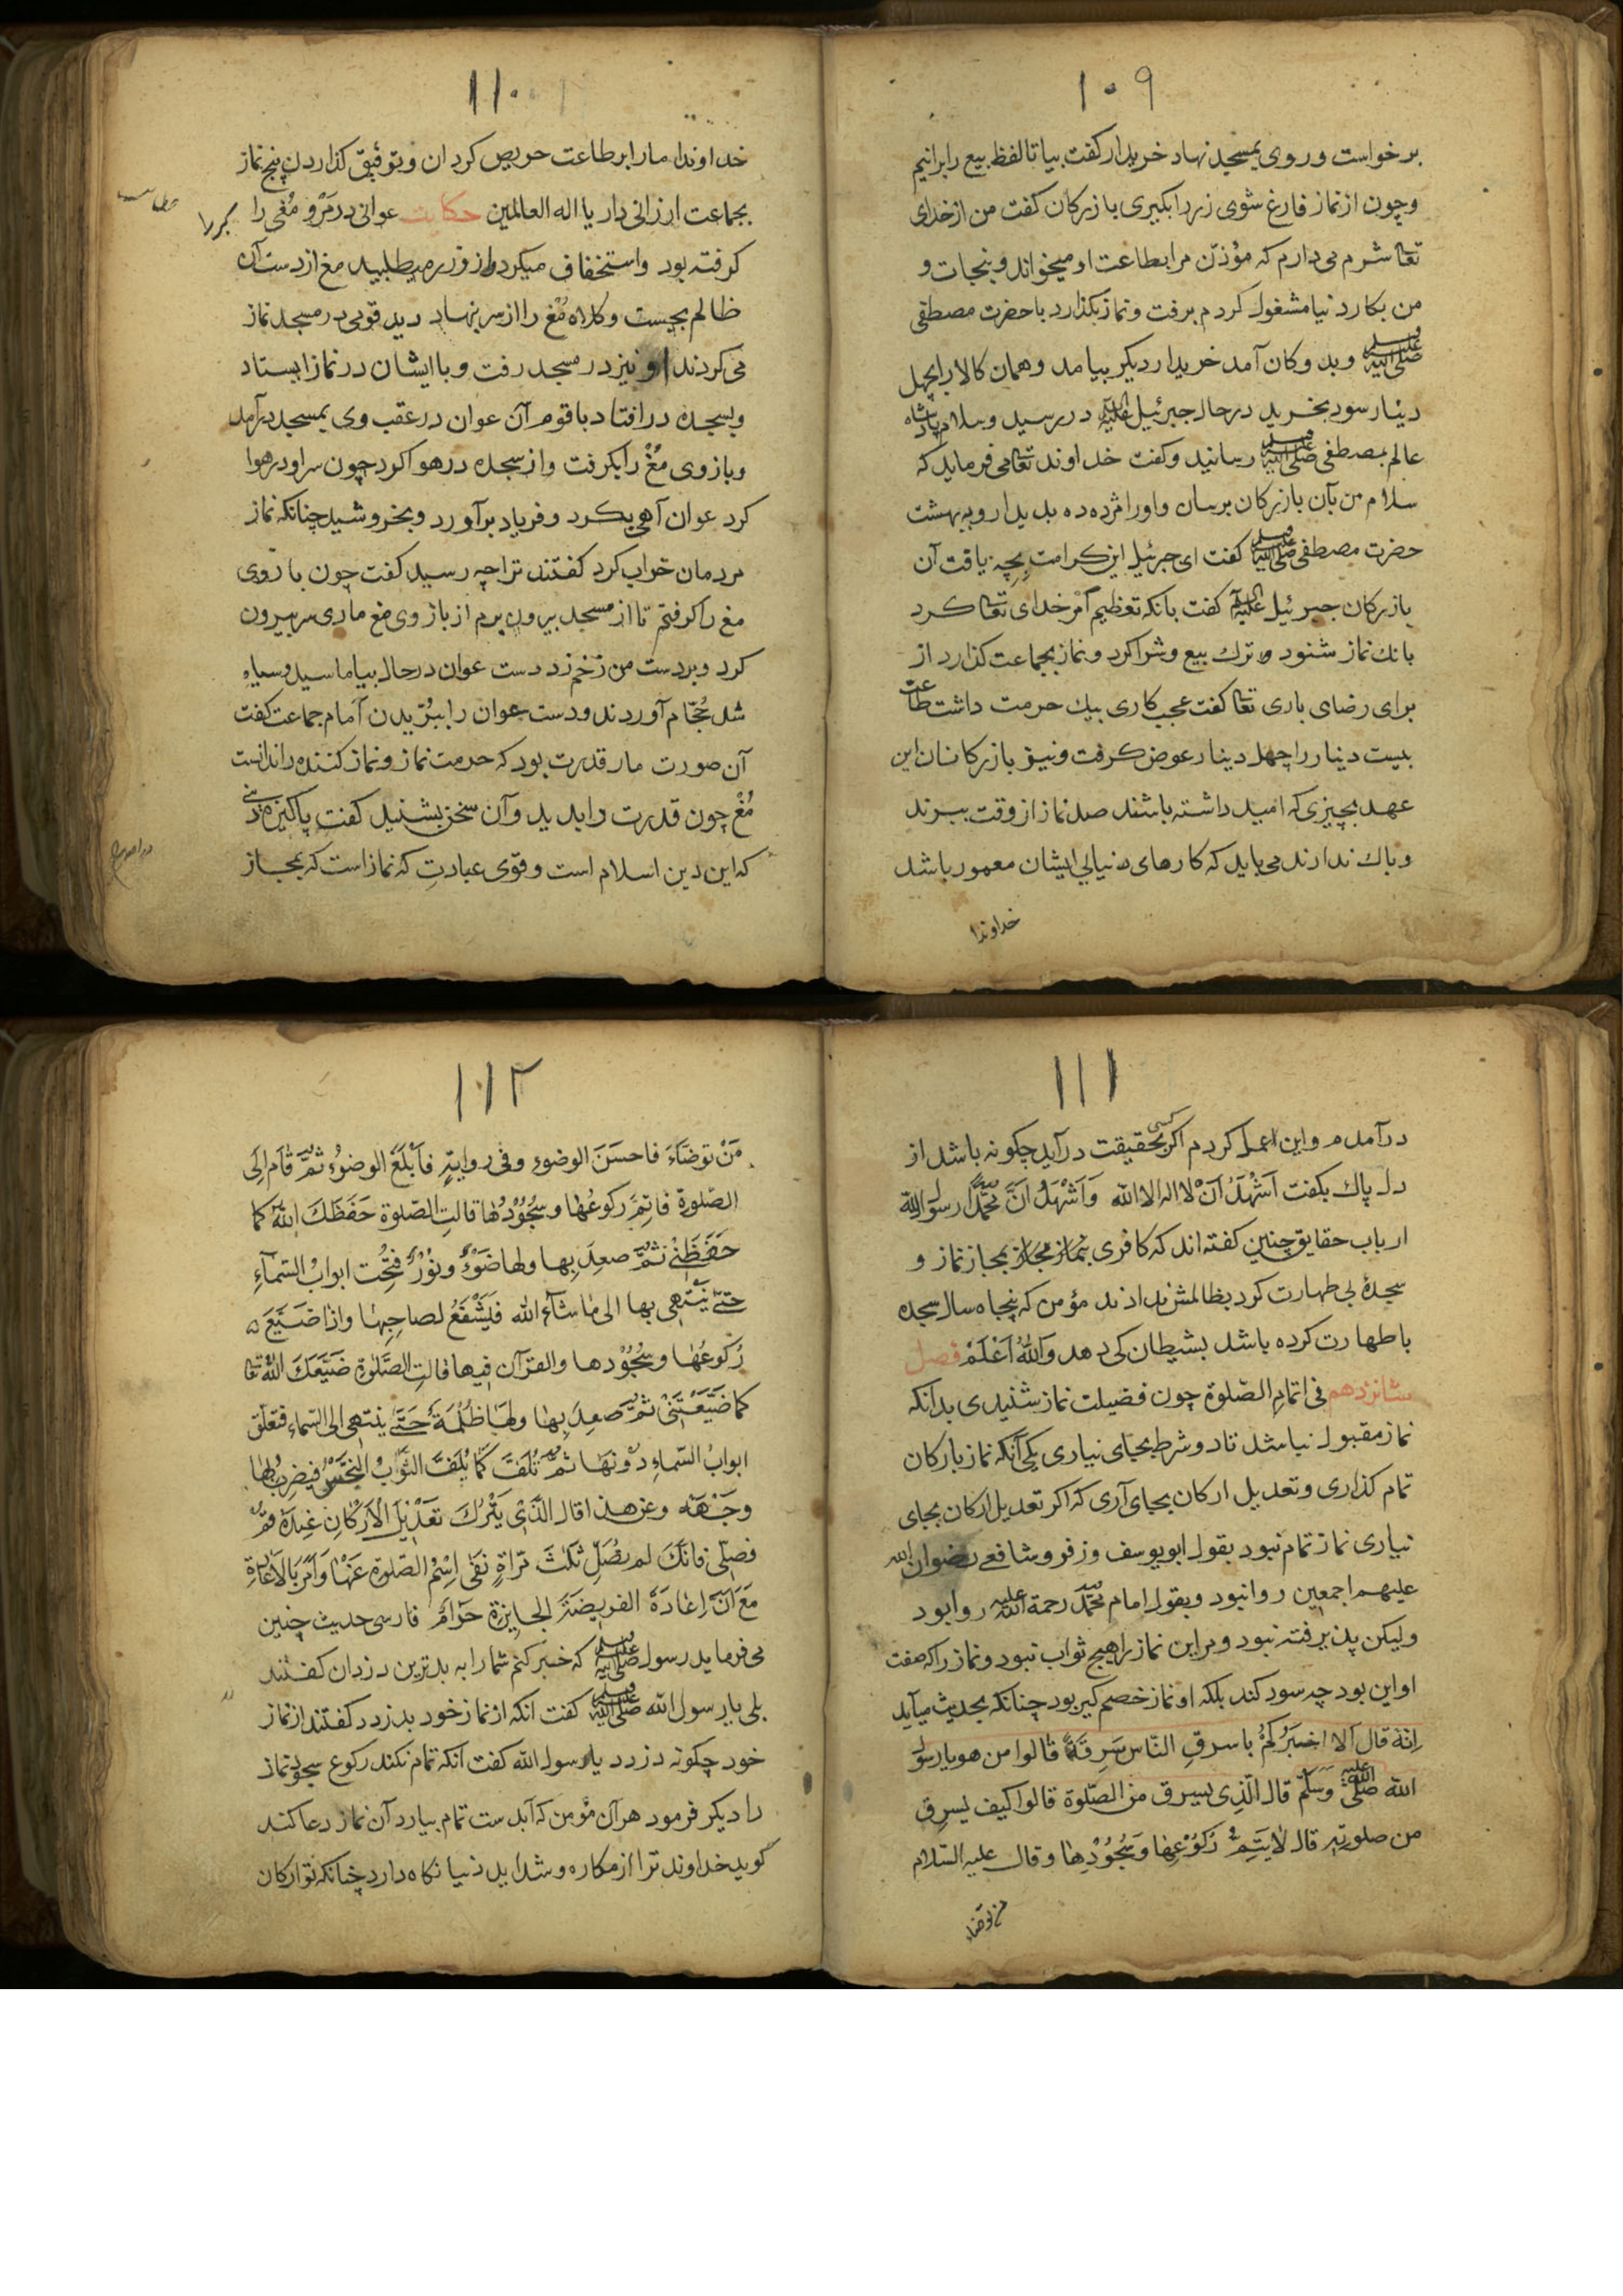 ۱۰۹
برخواست و روی بمسجد نهاد خریدار کفت بیا تا لفظ بیع را برانیم
و چون از نماز فارغ شوی زر را بکیری بازرکان کفت من از خدای
تعا شرم می دارم که مؤذن مرا بطاعت او میخواند و بنجات و
من بکار دنیا مشغول کردم برفت و نماز بکذارد با حضرت مصطفی
صلی الله علیه وسلم و بدوکان آمد خریدار دیکر بیامد و همان کالا را بچهل
دینار سود بخرید در حال جبرئیل علیه السلام در رسید و سلام پادشاه
عالم بمصطفی صلی الله علیه وسلم رسانید و کفت خداوند تعا می فرماید که
سلام من بآن بازرکان برسان و او را مژده ده بدیدار و به بهشت
حضرت مصطفی صلی الله علیه وسلم کفت ای جبرئیل این کرامت بچه یافت آن
بازرکان جبرئیل علیه السلام کفت بانکه تعظیم امر خدای تعا کرد
بانك نماز شنود و ترك بیع و شرا کرد و نماز بجماعت کذارد از
برای رضای باری تعا کفت عجب کاری بیك حرمت داشت طاعت
بیست دینار را چهل دینار عوض کرفت و نیز بازرکانان این
عهد بچیزی که امید داشته باشند صد نماز از وقت ببرند
و باك ندارند می باید که کارهای دنیایی ایشان معمور باشد
خداوندا
۱۱۰
خداوندا ما را بر طاعت حریص کردان و بتوفیق کذاردن پنج نماز
بجماعت ارزانی دار یا اله العالمین حکایت عوانی در مرو مغی را
کرفته بود و استخفاف میکرد و از و زر میطلبید مغ از دست آن
ظالم بجست و کلاه مغ را از سر بنهاد دید قومی در مسجد نماز
می کردند او نیز در مسجد رفت و با ایشان در نماز ایستاد
و بسجده در افتاد با قوم آن عوان در عقب وی بمسجد در آمد
و بازوی مغ را بکرفت و از سجده در هوا کرد چون سر او در هوا
کرد عوان آهی بکرد و فریاد برآورد و بخروشید چنانکه نماز
مردمان خراب کرد کفتند ترا چه رسید کفت چون بازوی
مغ را کرفتم تا از مسجد بیرون برم از بازوی مغ ماری سر بیرون
کرد و بر دست من زخم زد دست عوان در حال بیاماسید و سیاه
شد حجام آوردند و دست عوان را ببریدن امام جماعت کفت
آن صورت مار قدرت بود که حرمت نماز و نماز کننده را ندانست
مغ چون قدرت را بدید و آن سخن بشنید کفت پاکیزه دینی
که این دین اسلام است و قوی عبادت که نماز است که بمجاز
۱۱۱
در آمدم و این عمل کردم اکر کسی بحقیقت در آید چکونه باشد از
دل پاك بکفت اَشْهَدُ اَنْ لا اله الا الله وَاَشْهَدُ اَنَّ مُحَمَّدًا رسول الله
ارباب حقایق چنین کفته اند که کافری بمجاز نماز و
سجدهٔ بی طهارت کرد بظالمش نداند مؤمن که پنجاه سال سجده
با طهارت کرده باشد بشیطان کی دهد وَاللهُ اَعْلَمْ فصل
شانزدهم فی اتمام الصلوة چون فضیلت نماز شنیدی بدانکه
نماز مقبول نباشد تا دو شرط بجای نیاری یکی آنکه نماز بارکان
تمام کذاری و تعدیل ارکان بجای آری که اکر تعدیل ارکان بجای
نیاری نماز تمام نبود بقول ابو یوسف و زفر و شافعی رضوان الله
علیهم اجمعین روا نبود و بقول امام محمد رحمة الله علیه روا بود
ولیکن پذیرفته نبود و بر این نماز را هیچ ثواب نبود و نماز را که صفت
او این بود چه سود کند بلکه او نماز خصم کیر بود چنانکه بحدیث میآید
اِنّهُ قال اَلا اخبرُکُمْ باسرقِ النّاس سَرِقَةً قالوا من هو یا رسول
الله صلی الله علیه وَسَلَّمْ قال الّذِی یسرق من الصّلوة قالوا کیف یسرِق
من صلوتِه قال لا یَتِمُّ رُکُوعِها وَسُجُوْدِها وقال علیه السلام
من توضاء
۱۱۲
مَنْ توضّاءَ فاحسَنَ الوضوءِ وفی روایةٍ فاَبْلَغَ الوضوُءِ ثمَّ قامَ اِلَی
الصّلوةِ فاتِمَّ رکوعُها وسُجُوْدُها قالتِ الصّلوة حَفَظَكَ اللهُ کما
حَفَظَنِی ثمَّ صعِدَ بها ولها ضَوْءٌ ونُوْرٌ فتُحِت ابوابُ السّمآءِ
حتّی ینْتَهِی بها الی ما شآءَ الله فیَشْفَعُ لصاحِبِها واذا ضَیَّعَ
رُکوعُها وسُجُوْدها والقرآن فیها قالتِ الصَّلوةِ ضَیَّعَكَ اللهُ تعا
کما ضَیَّعْتَنِیْ ثمَّ صعِدَ بها ولها ظُلْمَةٌ حَتّی ینتهی الی السّماءِ فتغلق
ابوابُ السّماءِ دُوْنَها ثمَّ تُلَفَّ کما یُلَفَّ الثَّوابُ النَّجَسُ فیضرِبُ بها
وجَهَهُ وعن هذا قال الّذی یَتْرُكَ تَعْدِیْلَ الْاَرْکانِ عِنْدَهُ قمْ
فصلّی فانّكَ لم تصُلِّ ثلثَ مَرّاةٍ نفی اِسْمُ الصّلوة عَنْها وَاَمَرَ بالاعادَةِ
مَعَ اَنّ اِعادَةَ الفریضَةَ الجایزة حَرامٌ فارسی حدیث چنین
می فرماید رسول صلی الله علیه وسلم که خبر کنم شما را به بدترین دزدان کفتند
بلی یا رسول الله صلی الله علیه وسلم کفت انکه از نماز خود بدزدد کفتند از نماز
خود چکونه دزدد یا رسول الله کفت آنکه تمام نکند رکوع سجود نماز
را دیکر فرمود هر آن مؤمن که آبدست تمام بیارد آن نماز دعا کند
کوید خداوند ترا از مکاره و شداید دنیا نکاه دارد چنانکه تو ارکان